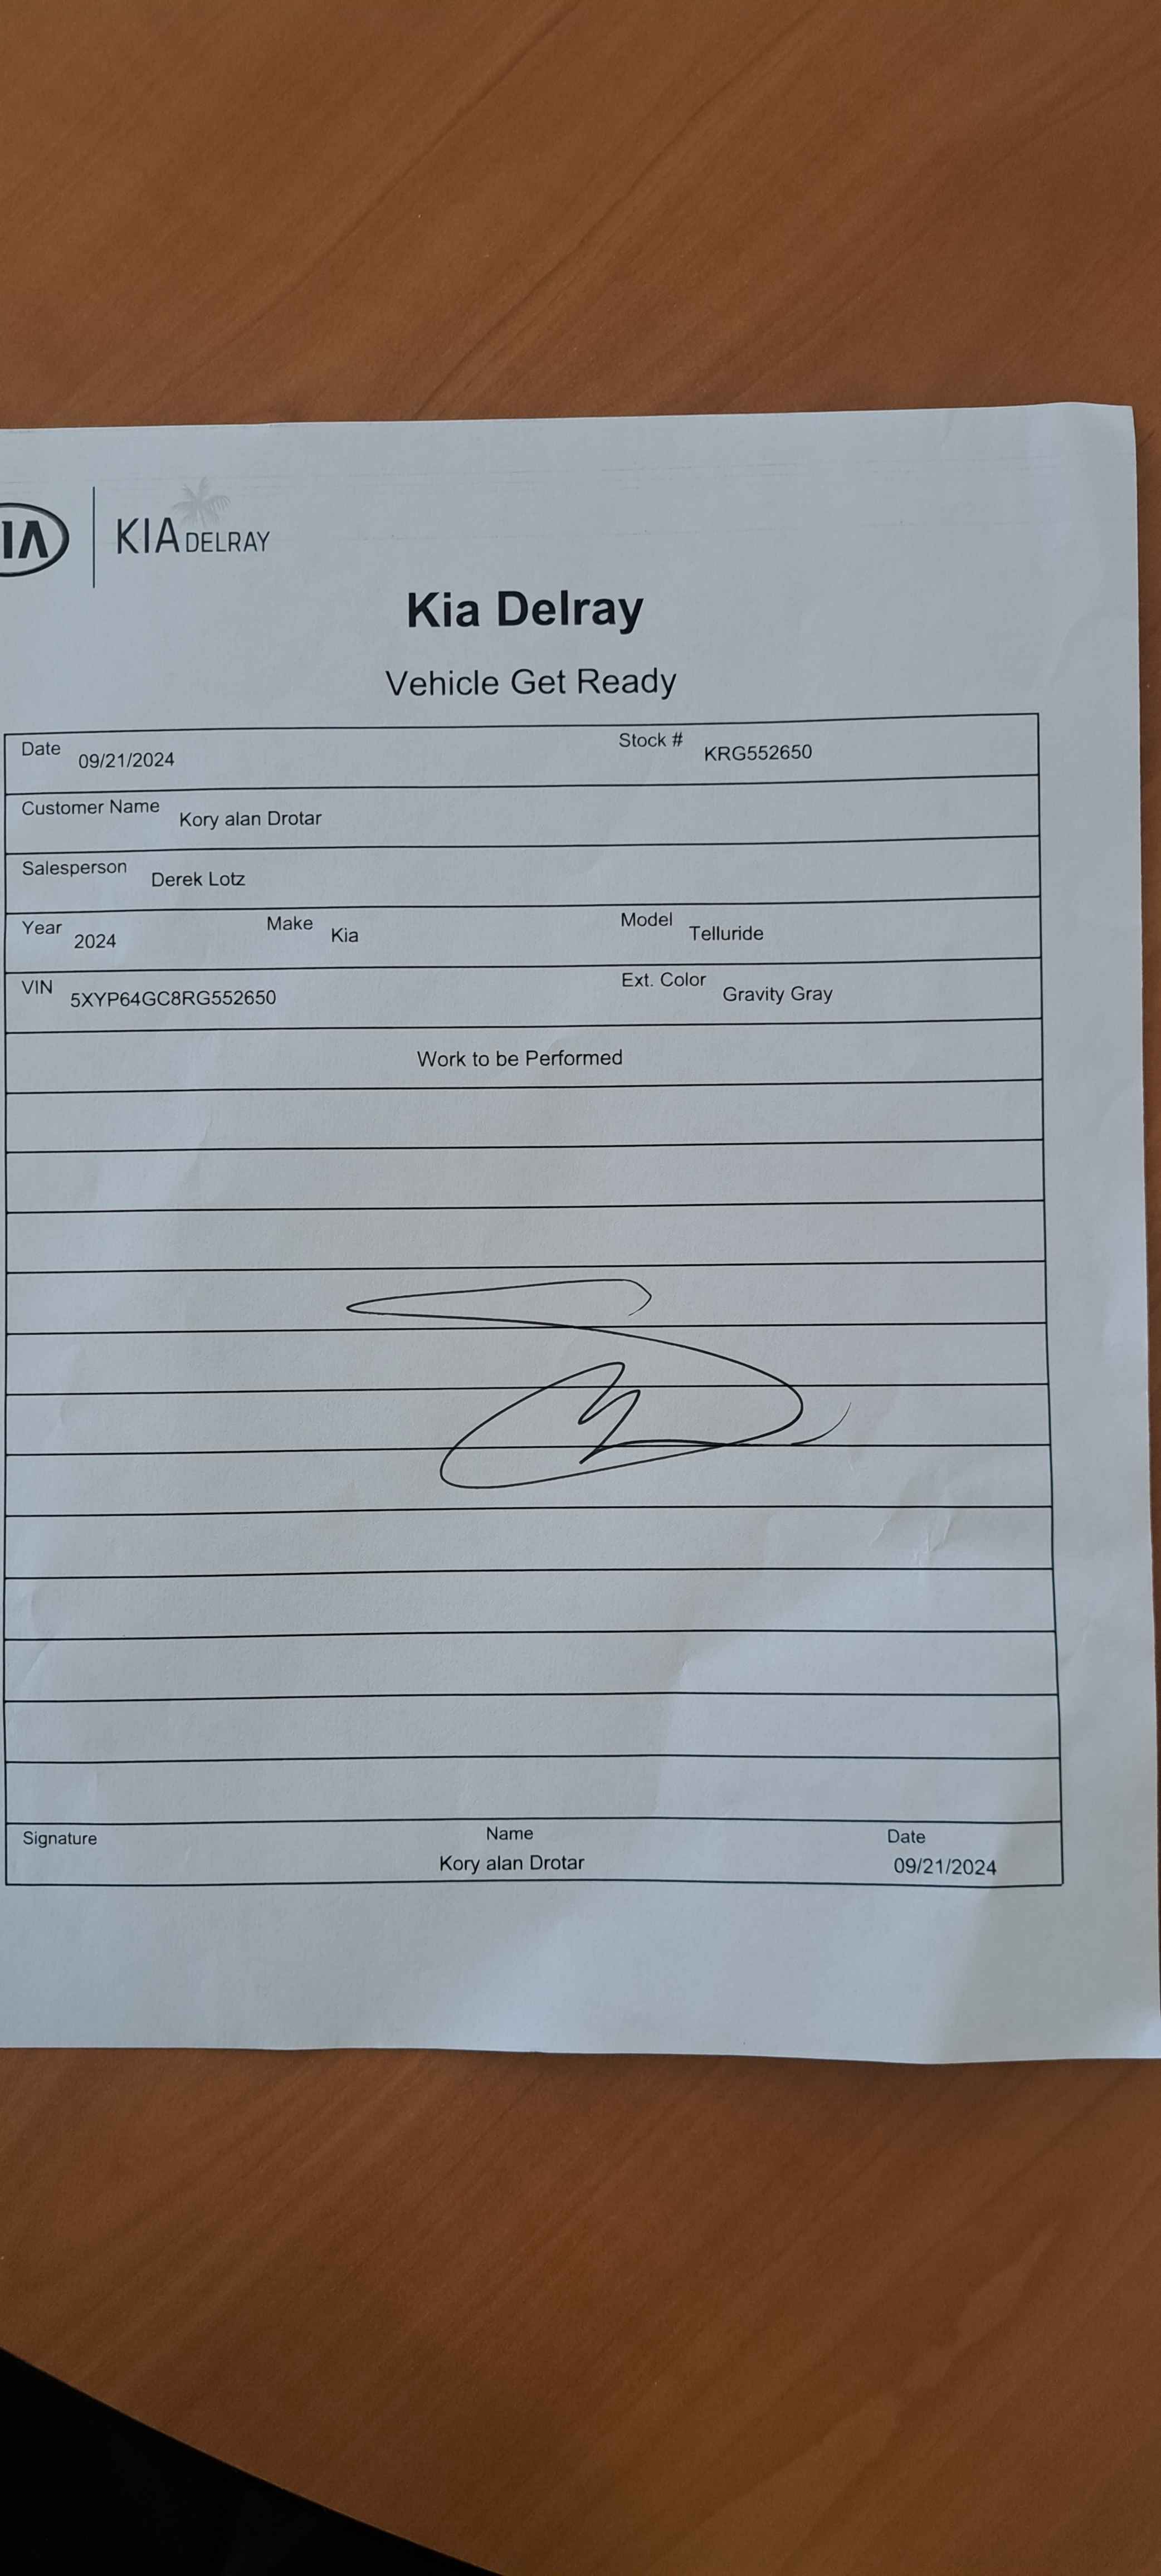 IA KIA DELRAY
Kia Delray
Vehicle Get Ready
Date 09/21/2024 Stock # KRG552650
Customer Name Kory alan Drotar
Salesperson Derek Lotz
Year 2024 Make Kia Model Telluride
VIN 5XYP64GC8RG552650 Ext. Color Gravity Gray
Work to be Performed
Signature Name Date
Kory alan Drotar 09/21/2024